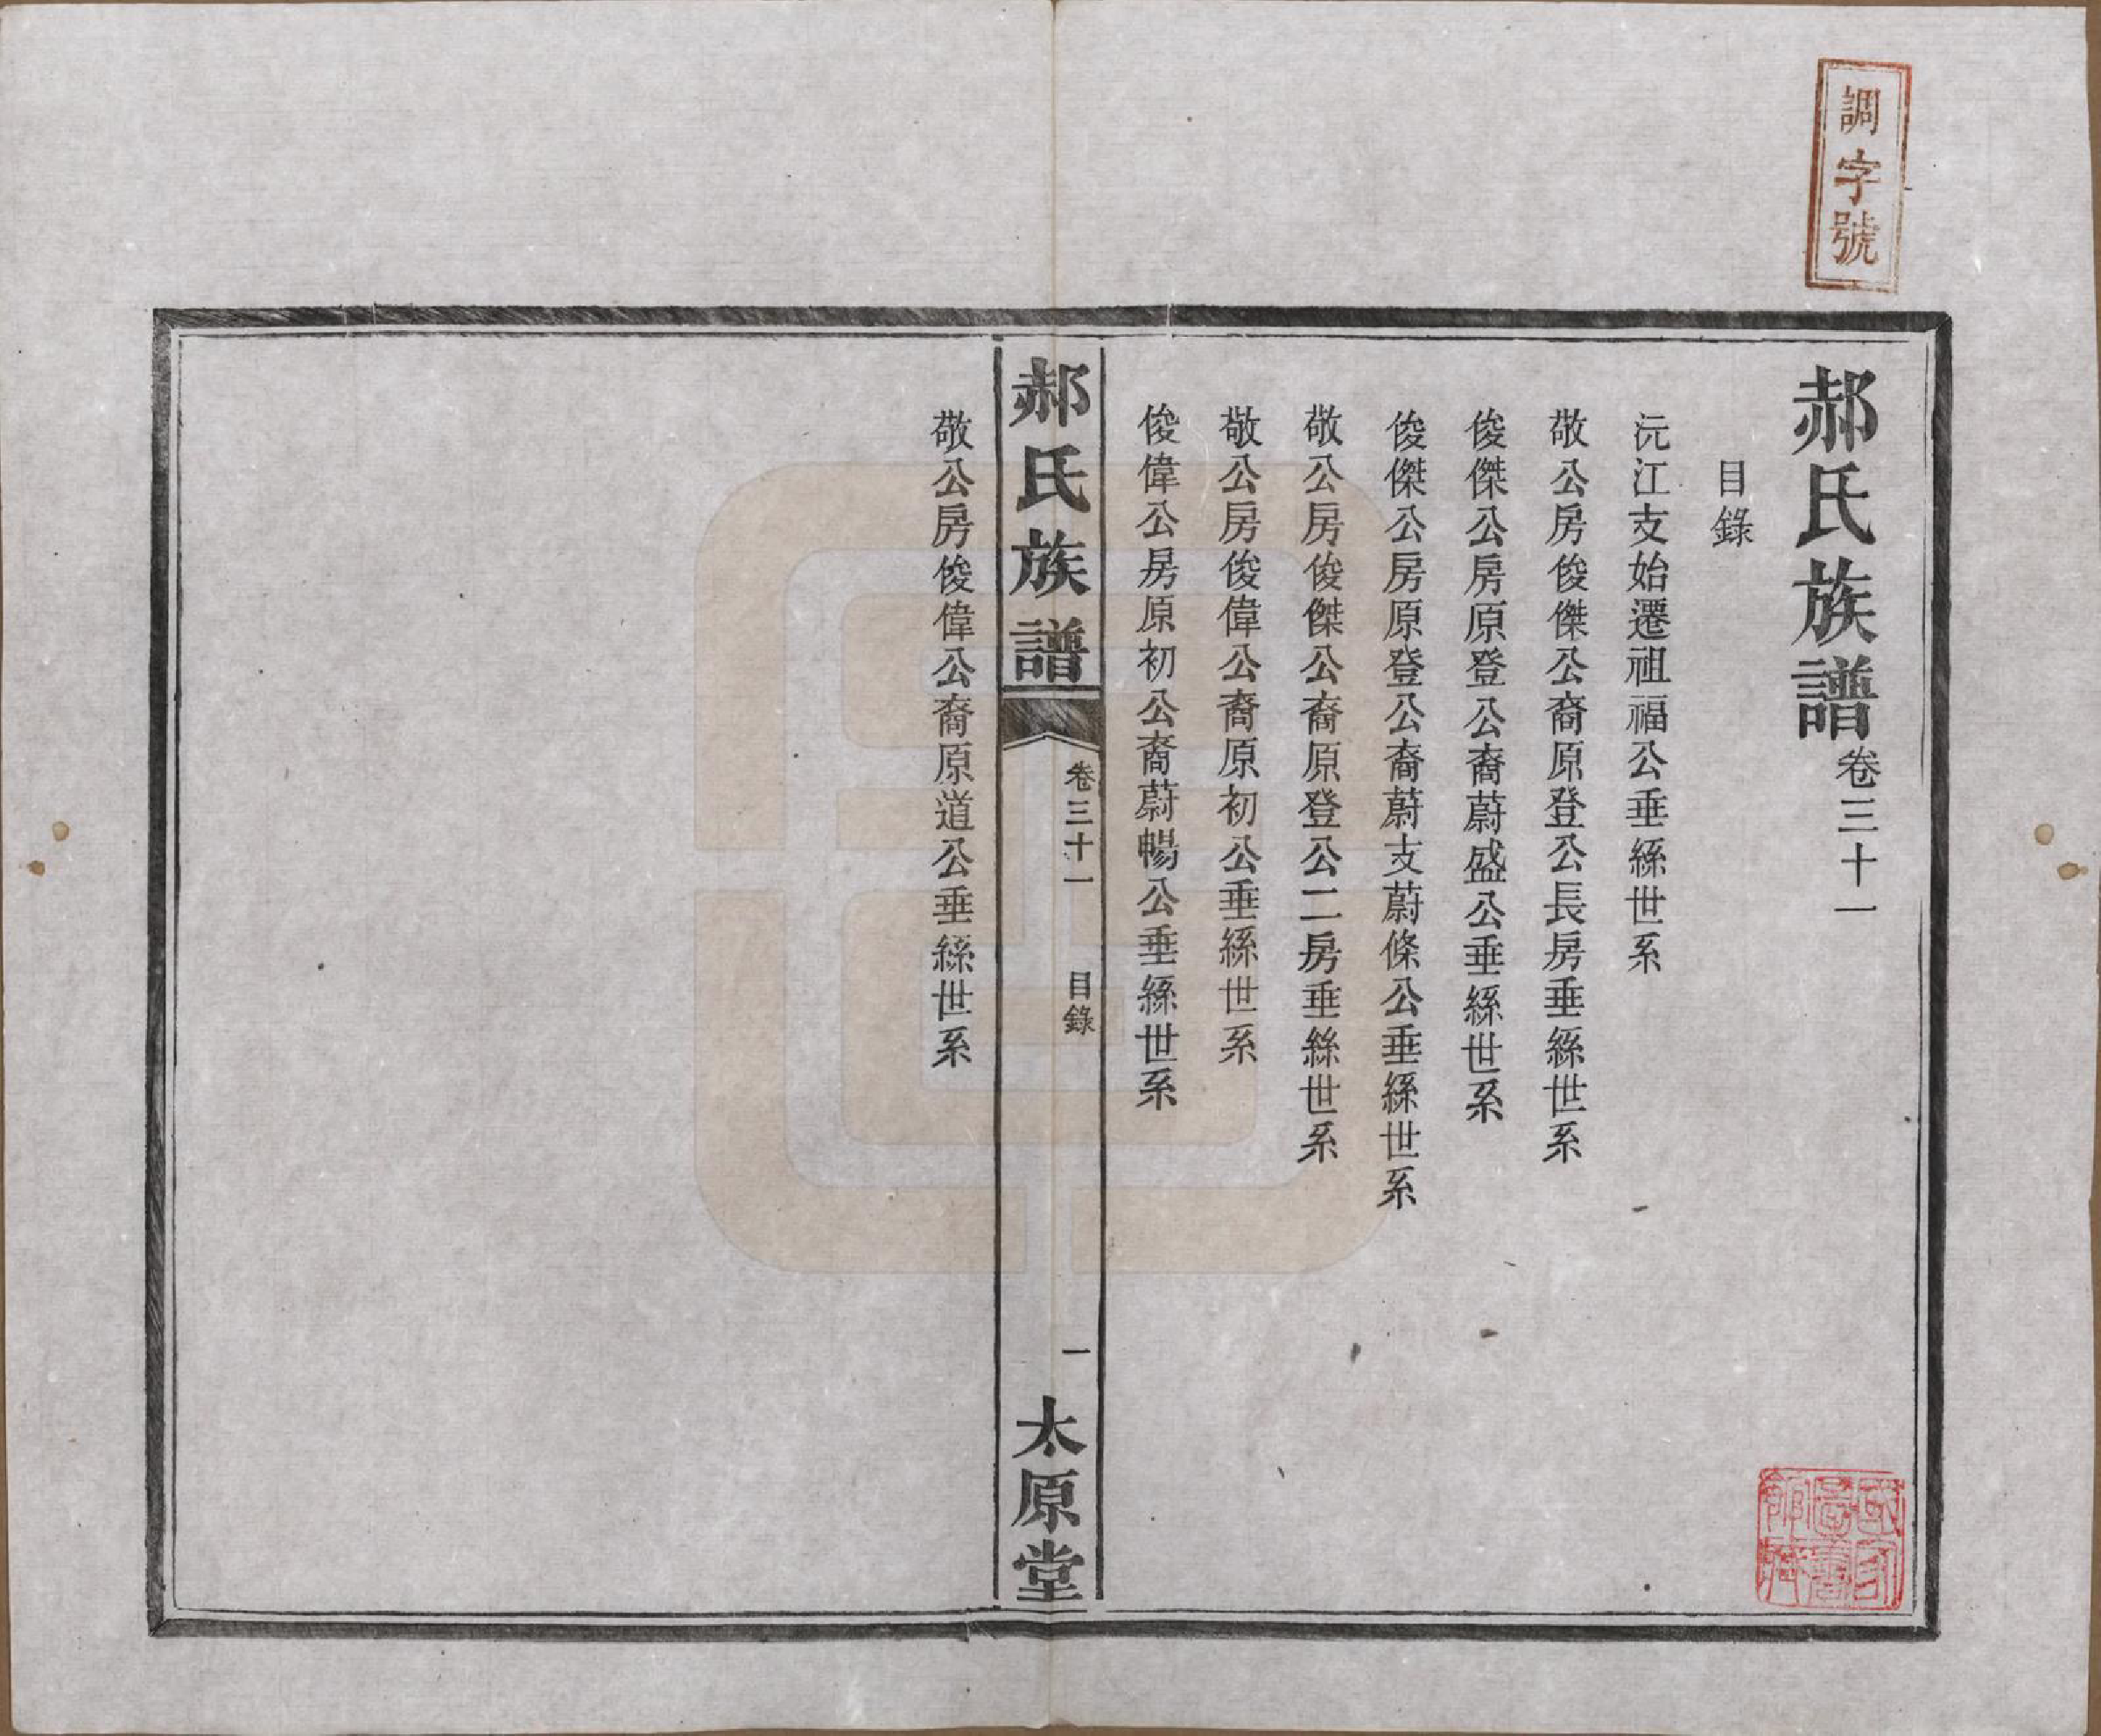 調字號
郝氏族譜卷三十一
目錄
沅江支始遷祖福公垂絲世系
敬公房俊傑公裔原登公長房垂絲世系
俊傑公房原登公裔蔚盛公垂絲世系
俊傑公房原登公裔蔚支蔚條公垂絲世系
敬公房俊傑公裔原登公二房垂絲世系
敬公房俊偉公裔原初公垂絲世系
俊偉公房原初公裔蔚暢公垂絲世系
郝氏族譜
卷三十一
目錄
一
太原堂
敬公房俊偉公裔原道公垂絲世系
國家圖書館藏